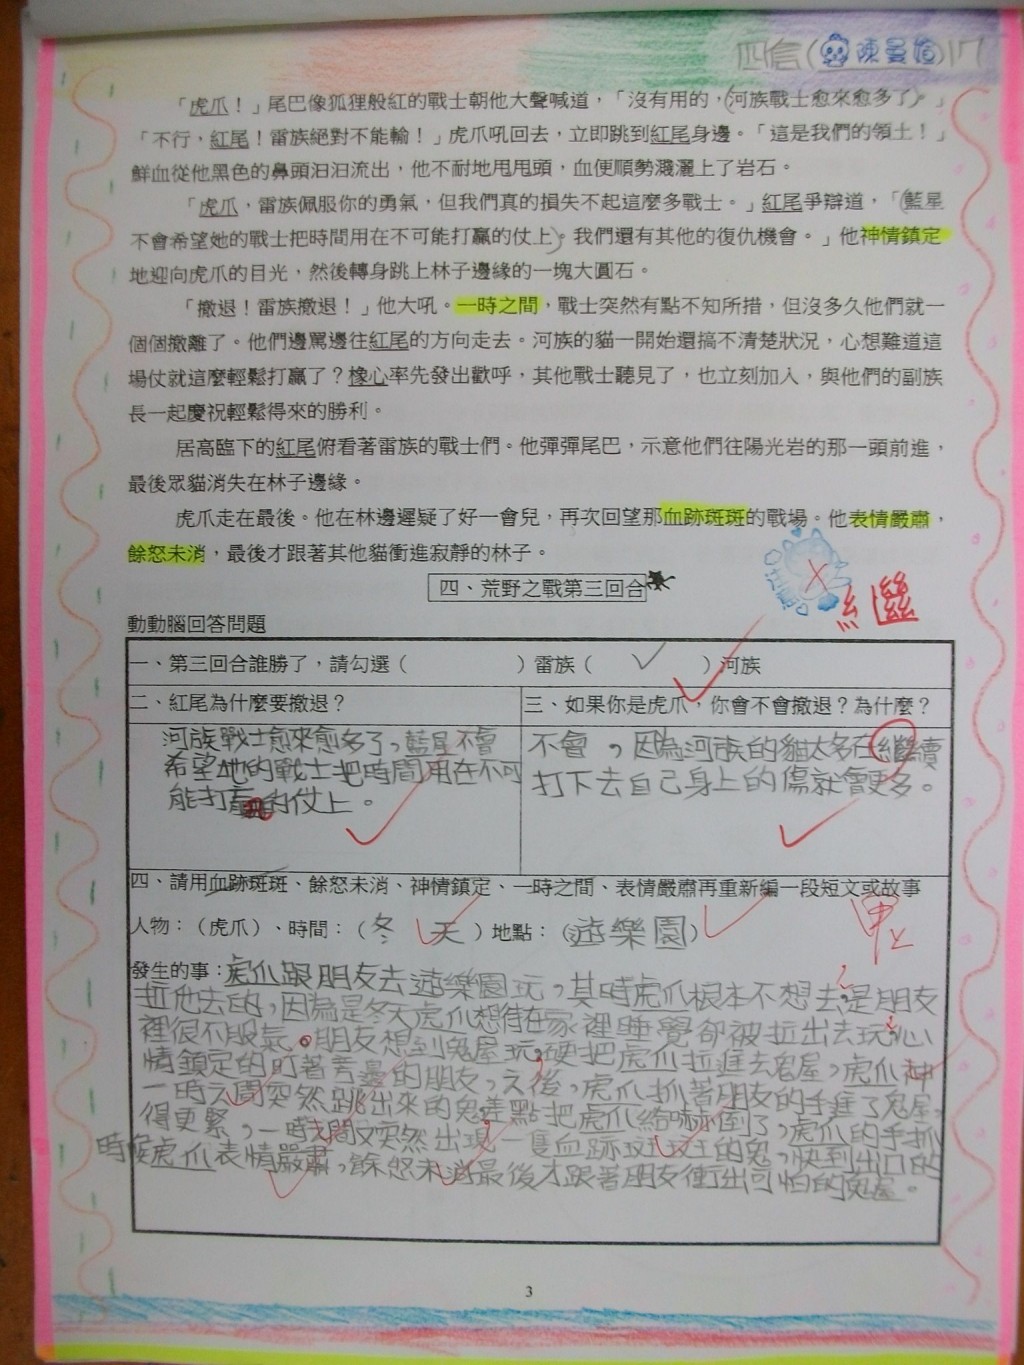 四信(陳曼)17
「虎爪！」尾巴像狐狸般紅的戰士朝他大聲喊道，「沒有用的，(河族戰士愈來愈多了)。」
「不行，紅尾！雷族絕對不能輸！」虎爪吼回去，立即跳到紅尾身邊。「這是我們的領土！」
鮮血從他黑色的鼻頭汩汩流出，他不耐地甩甩頭，血便順勢濺灑上了岩石。
「虎爪，雷族佩服你的勇氣，但我們真的損失不起這麼多戰士。」紅尾爭辯道，「(藍星
不會希望她的戰士把時間用在不可能打贏的仗上)。我們還有其他的復仇機會。」他神情鎮定
地迎向虎爪的目光，然後轉身跳上林子邊緣的一塊大圓石。
「撤退！雷族撤退！」他大吼。一時之間，戰士突然有點不知所措，但沒多久他們就一
個個撤離了。他們邊罵邊往紅尾的方向走去。河族的貓一開始還搞不清楚狀況，心想難道這
場仗就這麼輕鬆打贏了？橡心率先發出歡呼，其他戰士聽見了，也立刻加入，與他們的副族
長一起慶祝輕鬆得來的勝利。
居高臨下的紅尾俯看著雷族的戰士們。他彈彈尾巴，示意他們往陽光岩的那一頭前進，
最後眾貓消失在林子邊緣。
虎爪走在最後。他在林邊遲疑了好一會兒，再次回望那血跡斑斑的戰場。他表情嚴肅，
餘怒未消，最後才跟著其他貓衝進寂靜的林子。
四、荒野之戰第三回合
動動腦回答問題
一、第三回合誰勝了，請勾選（ ）雷族（ ✓ ）河族
二、紅尾為什麼要撤退？
三、如果你是虎爪，你會不會撤退？為什麼？
河族戰士愈來愈多了，藍星不會
希望她的戰士把時間用在不可
能打贏的仗上。
不會，因為河族的貓太多在繼續
打下去自己身上的傷就會更多。
四、請用血跡斑斑、餘怒未消、神情鎮定、一時之間、表情嚴肅再重新編一段短文或故事
人物：（虎爪）、時間：（冬天）地點：（遊樂園）
發生的事：虎爪跟朋友去遊樂園玩，其時虎爪根本不想去是朋友
拉他去的，因為是冬天虎爪想待在家裡睡覺卻被拉出去玩心
裡很不服氣。朋友想到鬼屋玩，硬把虎爪拉進去鬼屋，虎爪神
情鎮定的盯著旁邊的朋友，之後，虎爪抓著朋友的手進了鬼屋，
一時之間突然跳出來的鬼差點把虎爪給嚇倒了，虎爪的手抓
得更緊，一時之間又突然出現一隻血跡斑斑的鬼，快到出口的
時候虎爪表情嚴肅，餘怒未消最後才跟著朋友衝出可怕的鬼屋。
3